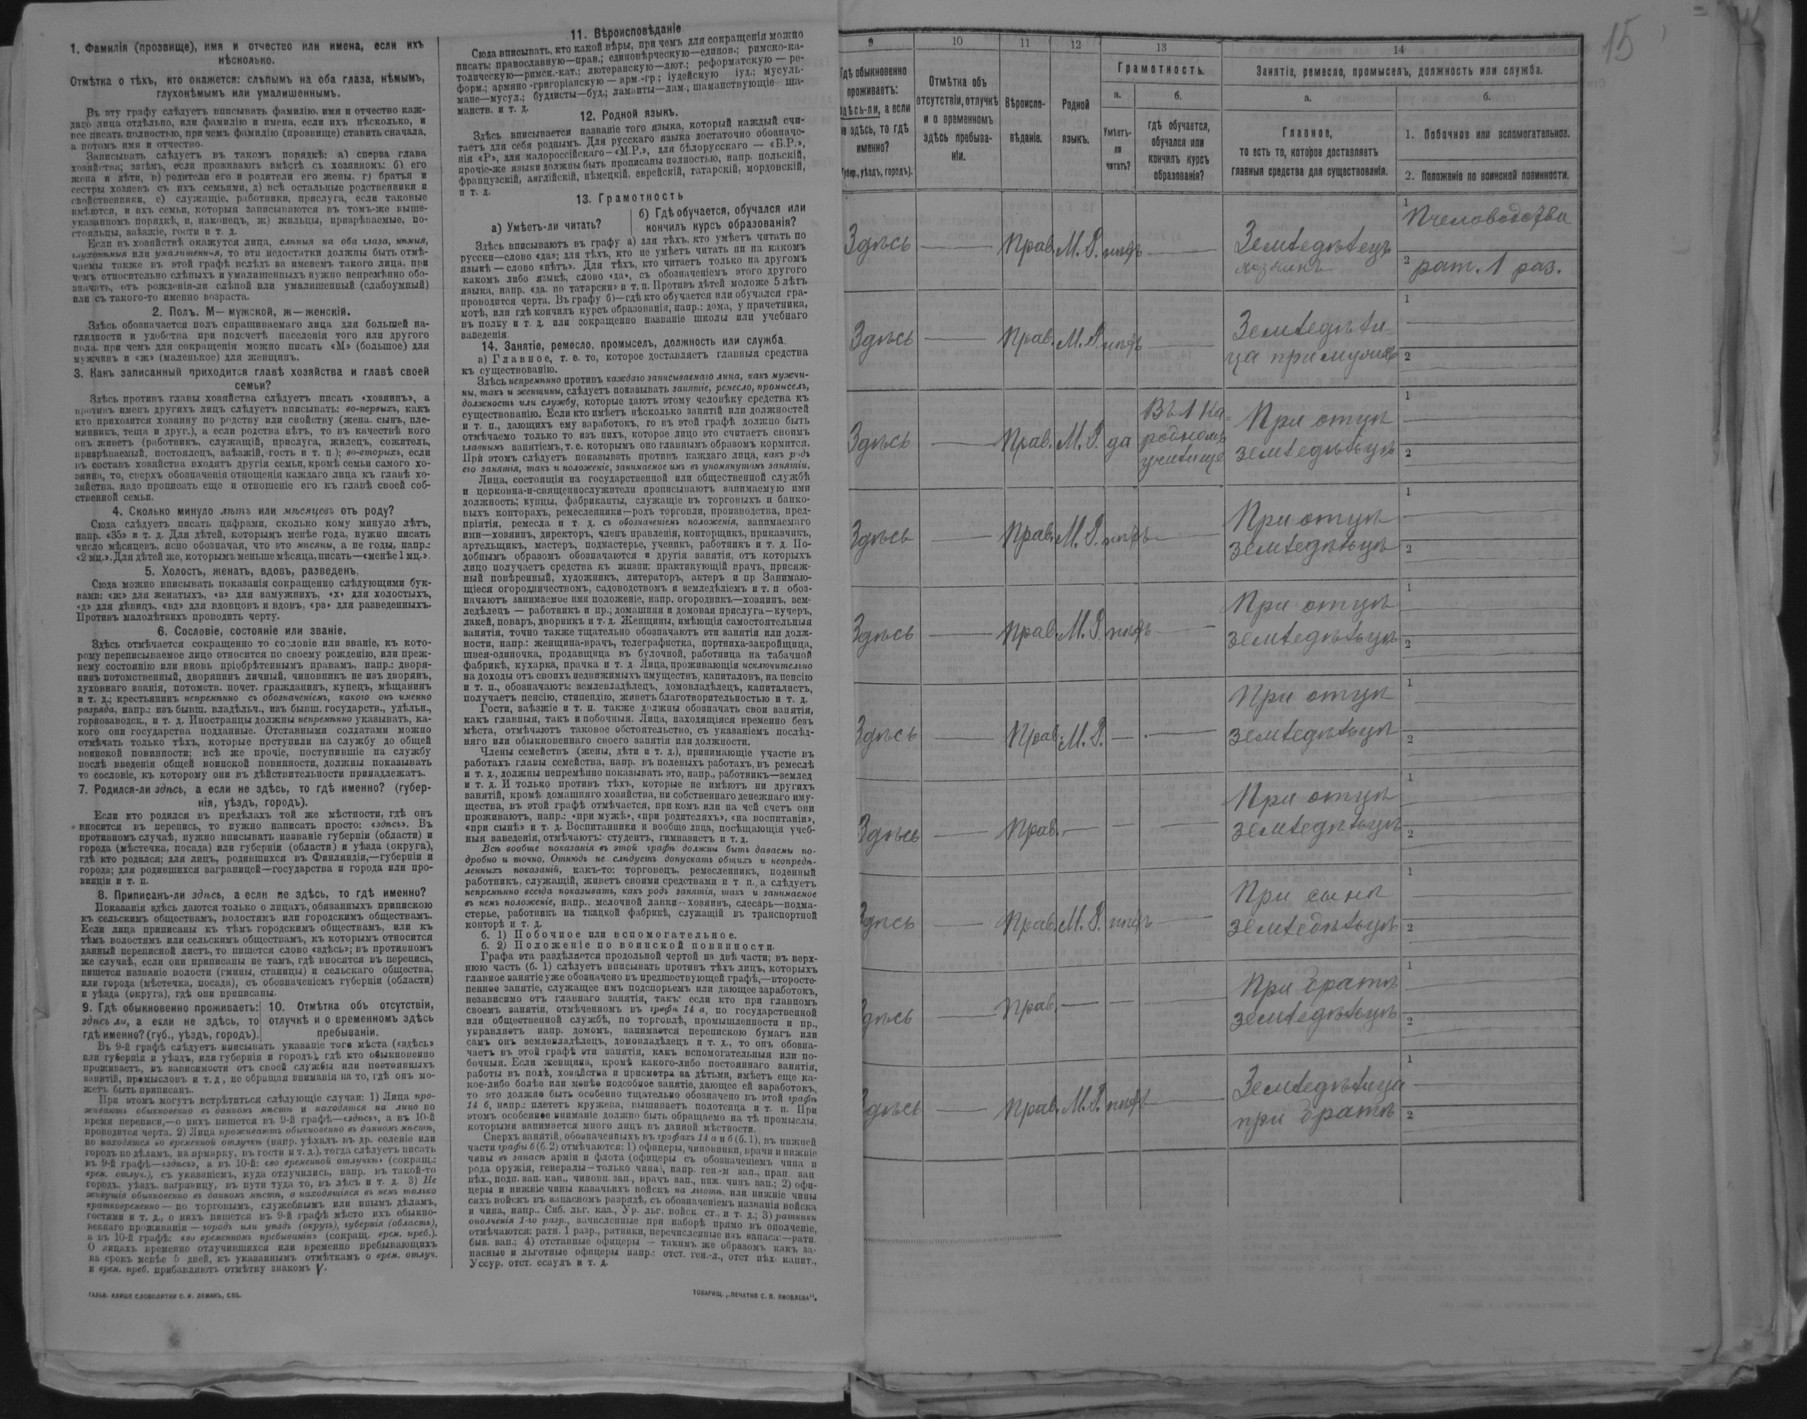 1. Фамилія (прозвище), имя и отчество или имена, если ихъ
нѣсколько.
Отмѣтка о тѣхъ, кто окажется: слѣпымъ на оба глаза, нѣмымъ,
глухонѣмымъ или умалишеннымъ.
Въ эту графу слѣдуетъ вписывать фамилію, имя и отчество каж-
даго лица отдѣльно, или фамилію и имена, если ихъ нѣсколько, и
все писать полностью, при чемъ фамилію (прозвище) ставить сначала,
а потомъ имя и отчество.
Записывать слѣдуетъ въ такомъ порядкѣ: а) сперва глава
хозяйства; затѣмъ, если проживаютъ вмѣстѣ съ хозяиномъ: б) его
жена и дѣти, в) родители его и родители его жены, г) братья и
сестры хозяевъ съ ихъ семьями, д) всѣ остальные родственники и
свойственники, е) служащіе, работники, прислуга, если таковые
имѣются, и ихъ семьи, которыя записываются въ томъ-же выше-
указанномъ порядкѣ, и, наконецъ, ж) жильцы, призрѣваемые, по-
стояльцы, заѣзжіе, гости и т. д.
Если въ хозяйствѣ окажутся лица, слѣпыя на оба глаза, нѣмыя,
глухонѣмыя или умалишенныя, то эти недостатки должны быть отмѣ-
чаемы также въ этой графѣ вслѣдъ за именемъ такого лица, при
чемъ относительно слѣпыхъ и умалишенныхъ нужно непремѣнно обо-
значать, отъ рожденія-ли слѣпой или умалишенный (слабоумный)
или съ такого-то именно возраста.
2. Полъ. М— мужской, ж—женскій.
Здѣсь обозначается полъ спрашиваемаго лица для большей на-
глядности и удобства при подсчетѣ населенія того или другого
пола, при чемъ для сокращенія можно писать «М» (большое) для
мужчинъ и «ж» (маленькое) для женщинъ.
3. Какъ записанный приходится главѣ хозяйства и главѣ своей
семьи?
Здѣсь противъ главы хозяйства слѣдуетъ писать «хозяинъ», а
противъ именъ другихъ лицъ слѣдуетъ вписывать: во-первыхъ, какъ
кто приходится хозяину по родству или свойству (жена, сынъ, пле-
мянникъ, теща и друг.), а если родства нѣтъ, то въ качествѣ кого
онъ живетъ (работникъ, служащій, прислуга, жилецъ, сожитель,
призрѣваемый, постоялецъ, заѣзжій, гость и т. п.); во-вторыхъ, если
въ составъ хозяйства входятъ другія семьи, кромѣ семьи самого хо-
зяина, то, сверхъ обозначенія отношенія каждаго лица къ главѣ хо-
зяйства, надо прописать еще и отношеніе его къ главѣ своей соб-
ственной семьи.
4. Сколько минуло лѣтъ или мѣсяцевъ отъ роду?
Сюда слѣдуетъ писать цифрами, сколько кому минуло лѣтъ,
напр. «35» и т. д. Для дѣтей, которымъ менѣе года, нужно писать
число мѣсяцевъ, ясно обозначая, что это мѣсяцы, а не годы, напр.:
«2 мц.». Для дѣтей же, которымъ меньше мѣсяца, писать—«менѣе 1 мц.».
5. Холостъ, женатъ, вдовъ, разведенъ.
Сюда можно вписывать показанія сокращенно слѣдующими бук-
вами: «ж» для женатыхъ, «з» для замужнихъ, «х» для холостыхъ,
«д» для дѣвицъ, «вд» для вдовцовъ и вдовъ, «рз» для разведенныхъ.
Противъ малолѣтнихъ проводить черту.
6. Сословіе, состояніе или званіе.
Здѣсь отмѣчается сокращенно то сословіе или званіе, къ кото-
рому переписываемое лицо относится по своему рожденію, или преж-
нему состоянію или вновь пріобрѣтеннымъ правамъ, напр.: дворя-
нинъ потомственный, дворянинъ личный, чиновникъ не изъ дворянъ,
духовнаго званія, потомств. почет. гражданинъ, купецъ, мѣщанинъ
и т. д.; крестьянинъ непремѣнно съ обозначеніемъ, какого онъ именно
разряда, напр.: изъ бывш. владѣльч., изъ бывш. государств., удѣльн.,
горнозаводск., и т. д. Иностранцы должны непремѣнно указывать, ка-
кого они государства подданные. Отставными солдатами можно
отмѣчать только тѣхъ, которые поступили на службу до общей
воинской повинности; всѣ же прочіе, поступившіе на службу
послѣ введенія общей воинской повинности, должны показывать
то сословіе, къ которому они въ дѣйствительности принадлежатъ.
7. Родился-ли здѣсь, а если не здѣсь, то гдѣ именно? (губер-
нія, уѣздъ, городъ).
Если кто родился въ предѣлахъ той же мѣстности, гдѣ онъ
вносится въ перепись, то нужно написать просто: «здѣсь». Въ
противномъ случаѣ, нужно вписывать названіе губерніи (области) и
города (мѣстечка, посада) или губерніи (области) и уѣзда (округа),
гдѣ кто родился; для лицъ, родившихся въ Финляндіи,—губерніи и
города; для родившихся заграницей—государства и города или про-
винціи и т. п.
8. Приписанъ-ли здѣсь, а если не здѣсь, то гдѣ именно?
Показанія здѣсь даются только о лицахъ, обязанныхъ припискою
къ сельскимъ обществамъ, волостямъ или городскимъ обществамъ.
Если лица приписаны къ тѣмъ городскимъ обществамъ, или къ
тѣмъ волостямъ или сельскимъ обществамъ, къ которымъ относится
данный переписной листъ, то пишется слово «здѣсь»; въ противномъ
же случаѣ, если они приписаны не тамъ, гдѣ вносятся въ перепись,
пишется названіе волости (гмины, станицы) и сельскаго общества,
или города (мѣстечка, посада), съ обозначеніемъ губерніи (области)
и уѣзда (округа), гдѣ они приписаны.
9. Гдѣ обыкновенно проживаетъ:
здѣсь ли, а если не здѣсь, то
гдѣ именно? (губ., уѣздъ, городъ).
10. Отмѣтка объ отсутствіи,
отлучкѣ и о временномъ здѣсь
пребываніи.
Въ 9-й графѣ слѣдуетъ вписывать указаніе того мѣста («здѣсь»
или губернія и уѣздъ, или губернія и городъ), гдѣ кто обыкновенно
проживаетъ, въ зависимости отъ своей службы или постоянныхъ
занятій, промысловъ и т. д., не обращая вниманія на то, гдѣ онъ мо-
жетъ быть приписанъ.
При этомъ могутъ встрѣтиться слѣдующіе случаи: 1) Лица про-
живаютъ обыкновенно въ данномъ мѣстѣ и находятся на лицо во
время переписи,—о нихъ пишется въ 9-й графѣ—«здѣсь», а въ 10-й
проводится черта. 2) Лица проживаютъ обыкновенно въ данномъ мѣстѣ,
но находятся во временной отлучкѣ (напр. уѣхалъ въ др. селеніе или
городъ по дѣламъ, на ярмарку, въ гости и т. д.), тогда слѣдуетъ писать
въ 9-й графѣ—«здѣсь», а въ 10-й: «во временной отлучкѣ» (сокращ.:
врем. отлуч.), съ указаніемъ, куда отлучились, напр. въ такой-то
городъ, уѣздъ, заграницу, въ пути туда то, въ лѣсъ и т. д. 3) Не
живущія обыкновенно въ данномъ мѣстѣ, а находящіяся въ немъ только
кратковременно — по торговымъ, служебнымъ или инымъ дѣламъ,
гостями и т. д., о нихъ пишется въ 9-й графѣ мѣсто ихъ обыкно-
веннаго проживанія — городъ или уѣздъ (округъ), губернія (область),
а въ 10-й графѣ: «во временномъ пребываніи» (сокращ. врем. преб.).
О лицахъ временно отлучившихся или временно пребывающихъ
на срокъ менѣе 5 дней, къ указаннымъ отмѣткамъ о врем. отлуч.
и врем. преб. прибавляютъ отмѣтку знакомъ V.
ГАЛЬВ. КЛИШЕ СЛОВОЛИТНИ О. И. ЛЕМАНЪ, СПБ.
11. Вѣроисповѣданіе
Сюда вписывать, кто какой вѣры, при чемъ для сокращенія можно
писать: православную—прав.; единовѣрческую—единов.; римско-ка-
толическую—римск.-кат.; лютеранскую—лют.; реформатскую — ре-
форм.; армяно-григоріанскую — арм.-гр.; іудейскую — іуд.; мусуль-
мане—мусул.; буддисты—буд.; ламаиты—лам.; шаманствующіе — ша-
манств. и т. д.
12. Родной языкъ.
Здѣсь вписывается названіе того языка, который каждый счи-
таетъ для себя роднымъ. Для русскаго языка достаточно обозначе-
нія «Р», для малороссійскаго—«М.Р.», для бѣлорусскаго — «Б.Р.»,
прочіе-же языки должны быть прописаны полностью, напр. польскій,
французскій, англійскій, нѣмецкій, еврейскій, татарскій, мордовскій,
и т. д.
13. Грамотность
а) Умѣетъ-ли читать?
б) Гдѣ обучается, обучался или
кончилъ курсъ образованія?
Здѣсь вписываютъ въ графу а) для тѣхъ, кто умѣетъ читать по
русски—слово «да»; для тѣхъ, кто не умѣетъ читать ни на какомъ
языкѣ — слово «нѣтъ». Для тѣхъ, кто читаетъ только на другомъ
какомъ либо языкѣ, слово «да», съ обозначеніемъ этого другого
языка, напр. «да, по татарски» и т. п. Противъ дѣтей моложе 5 лѣтъ
проводится черта. Въ графу б)—гдѣ кто обучается или обучался гра-
мотѣ, или гдѣ кончилъ курсъ образованія, напр.: дома, у причетника,
въ полку и т. д. или сокращенно названіе школы или учебнаго
заведенія
14. Занятіе, ремесло, промыселъ, должность или служба.
а) Главное, т. е. то, которое доставляетъ главныя средства
къ существованію.
Здѣсь непремѣнно противъ каждаго записываемаго лица, какъ мужчи-
ны, такъ и женщины, слѣдуетъ показывать занятіе, ремесло, промыселъ,
должность или службу, которые даютъ этому человѣку средства къ
существованію. Если кто имѣетъ нѣсколько занятій или должностей
и т. п., дающихъ ему заработокъ, то въ этой графѣ должно быть
отмѣчаемо только то изъ нихъ, которое лицо это считаетъ своимъ
главнымъ занятіемъ, т. е. которымъ оно главнымъ образомъ кормится.
При этомъ слѣдуетъ показывать противъ каждаго лица, какъ родъ
его занятія, такъ и положеніе, занимаемое имъ въ упомянутомъ занятіи.
Лица, состоящія на государственной или общественной службѣ
и церковно-и-священнослужители прописываютъ занимаемую ими
должность; купцы, фабриканты, служащіе въ торговыхъ и банко-
выхъ конторахъ, ремесленники—родъ торговли, производства, пред-
пріятія, ремесла и т. д. съ обозначеніемъ положенія, занимаемаго
ими—хозяинъ, директоръ, членъ правленія, конторщикъ, приказчикъ,
артельщикъ, мастеръ, подмастерье, ученикъ, работникъ и т. д. По-
добнымъ образомъ обозначаются и другія занятія, отъ которыхъ
лицо получаетъ средства къ жизни: практикующій врачъ, присяж-
ный повѣренный, художникъ, литераторъ, актеръ и пр Занимаю-
щіеся огородничествомъ, садоводствомъ и земледѣліемъ и т. п. обоз-
начаютъ занимаемое ими положеніе, напр. огородникъ—хозяинъ, зем-
ледѣлецъ — работникъ и пр.; домашняя и домовая прислуга—кучеръ,
лакей, поваръ, дворникъ и т. д. Женщины, имѣющія самостоятельныя
занятія, точно также тщательно обозначаютъ эти занятія или долж-
ности, напр.: женщина-врачъ, телеграфистка, портниха-закройщица,
швея-одиночка, продавщица въ булочной, работница на табачной
фабрикѣ, кухарка, прачка и т. д Лица, проживающія исключительно
на доходы отъ своихъ недвижимыхъ имуществъ, капиталовъ, на пенсію
и т. п., обозначаютъ: землевладѣлецъ, домовладѣлецъ, капиталистъ,
получаетъ пенсію, стипендію, живетъ благотворительностью и т. д.
Гости, заѣзжіе и т. п. также должны обозначать свои занятія,
какъ главныя, такъ и побочныя. Лица, находящіяся временно безъ
мѣста, отмѣчаютъ таковое обстоятельство, съ указаніемъ послѣд-
няго или обыкновеннаго своего занятія или должности.
Члены семействъ (жены, дѣти и т. д.), принимающіе участіе въ
работахъ главы семейства, напр. въ полевыхъ работахъ, въ ремеслѣ
и т. д., должны непремѣнно показывать это, напр., работникъ—землед
и т. д. И только противъ тѣхъ, которые не имѣютъ ни другихъ
занятій, кромѣ домашняго хозяйства, ни собственнаго денежнаго иму-
щества, въ этой графѣ отмѣчается, при комъ или на чей счетъ они
проживаютъ, напр.: «при мужѣ», «при родителяхъ», «на воспитаніи»,
«при сынѣ» и т. д. Воспитанники и вообще лица, посѣщающія учеб-
ныя заведенія, отмѣчаютъ: студентъ, гимназистъ и т. д.
Всѣ вообще показанія въ этой графѣ должны быть даваемы по-
дробно и точно. Отнюдь не слѣдуетъ допускать общихъ и неопредѣ-
ленныхъ показаній, какъ-то: торговецъ, ремесленникъ, поденный
работникъ, служащій, живетъ своими средствами и т п., а слѣдуетъ
непремѣнно всегда показывать, какъ родъ занятія, такъ и занимаемое
въ немъ положеніе, напр. мелочной лавки—хозяинъ, слесарь—подма-
стерье, работникъ на ткацкой фабрикѣ, служащій въ транспортной
конторѣ и т. д.
б. 1) Побочное или вспомогательное.
б. 2) Положеніе по воинской повинности.
Графа эта раздѣляется продольной чертой на двѣ части; въ верх-
нюю часть (б. 1) слѣдуетъ вписывать противъ тѣхъ лицъ, которыхъ
главное занятіе уже обозначено въ предшествующей графѣ,—второсте-
пенное занятіе, служащее имъ подспорьемъ или дающее заработокъ,
независимо отъ главнаго занятія, такъ: если кто при главномъ
своемъ занятіи, отмѣченномъ въ графѣ 14 а, по государственной
или общественной службѣ, по торговлѣ, промышленности и пр.,
управляетъ напр. домомъ, занимается перепискою бумагъ или
самъ онъ землевладѣлецъ, домовладѣлецъ и т. д., то онъ обозна-
чаетъ въ этой графѣ эти занятія, какъ вспомогательныя или по-
бочныя. Если женщина, кромѣ какого-либо постояннаго занятія,
работы въ полѣ, хозяйства и присмотра за дѣтьми, имѣетъ еще ка-
кое-либо болѣе или менѣе подсобное занятіе, дающее ей заработокъ,
то это должно быть особенно тщательно обозначено въ этой графѣ
14 б, напр.: плететъ кружева, вышиваетъ полотенца и т. п. При
этомъ особенное вниманіе должно быть обращаемо на тѣ промыслы,
которыми занимается много лицъ въ данной мѣстности.
Сверхъ занятій, обозначенныхъ въ графахъ 14 а и б (б. 1), въ нижней
части графы б (б. 2) отмѣчаются: 1) офицеры, чиновники, врачи и нижніе
чины въ запасѣ арміи и флота (офицеры съ обозначеніемъ чина и
рода оружія, генералы—только чина), напр. ген.-м зап., прап. зап
пѣх., подп. зап. кав., чиновн. зап., врачъ зап., ниж. чинъ зап.; 2) офи-
церы и нижніе чины казачьихъ войскъ на льготѣ, или нижніе чины
сихъ войскъ въ запасномъ разрядѣ, съ обозначеніемъ названія войска
и чина, напр.. Сиб. льг. каз., Ур. льг. войск. ст., и т. д.; 3) ратники
ополченія 1-го разр., зачисленные при наборѣ прямо въ ополченіе,
отмѣчаются: ратн. 1 разр., ратники, перечисленные изъ запаса:—ратн.
быв. зап.; 4) отставные офицеры — такимъ же образомъ какъ за-
пасные и льготные офицеры напр.: отст. ген.-л., отст пѣх. капит.,
Уссур. отст. есаулъ и т. д.
ТОВАРИЩ. „ПЕЧАТНЯ С. П. ЯКОВЛЕВА“.
15
9 10 11 12 13 14
Гдѣ обыкновенно
проживаетъ:
здѣсь-ли, а если
не здѣсь, то гдѣ
именно?
(губер., уѣздъ, городъ).
Отмѣтка объ
отсутствіи, отлучкѣ
и о временномъ
здѣсь пребыва-
ніи.
Вѣроиспо-
вѣданіе.
Родной
языкъ.
Грамотность.
а.
Умѣетъ-
ли
читать?
б.
гдѣ обучается,
обучался или
кончилъ курсъ
образованія?
Занятіе, ремесло, промыселъ, должность или служба.
а.
Главное,
то есть то, которое доставляетъ
главныя средства для существованія.
б.
1. Побочное или вспомогательное.
2. Положеніе по воинской повинности.
Здѣсь — Прав. М.Р. нѣтъ — Земледѣлецъ
хозяинъ
1 Пчеловодства
2 рат. 1 раз.
Здѣсь — Прав. М.Р. нѣтъ Земледѣли-
ца при мужѣ
1
2
Здѣсь — Прав. М.Р. да Въ 1 На-
родномъ
училищѣ
При отцѣ
земледѣльцѣ
1
2
Здѣсь — Прав. М.Р. нѣтъ — При отцѣ
земледѣльцѣ
1
2
Здѣсь — Прав. М.Р. нѣтъ — При отцѣ
земледѣльцѣ
1
2
Здѣсь — Прав. М.Р. — — При отцѣ
земледѣльцѣ
1
2
Здѣсь — Прав. — — — При отцѣ
земледѣльцѣ
1
2
Здѣсь — Прав. М.Р. нѣтъ — При сынѣ
земледѣльцѣ
1
2
Здѣсь — Прав. — — — При братѣ
земледѣльцѣ
1
2
Здѣсь — Прав. М.Р. нѣтъ — Земледѣлица
при братѣ
1
2